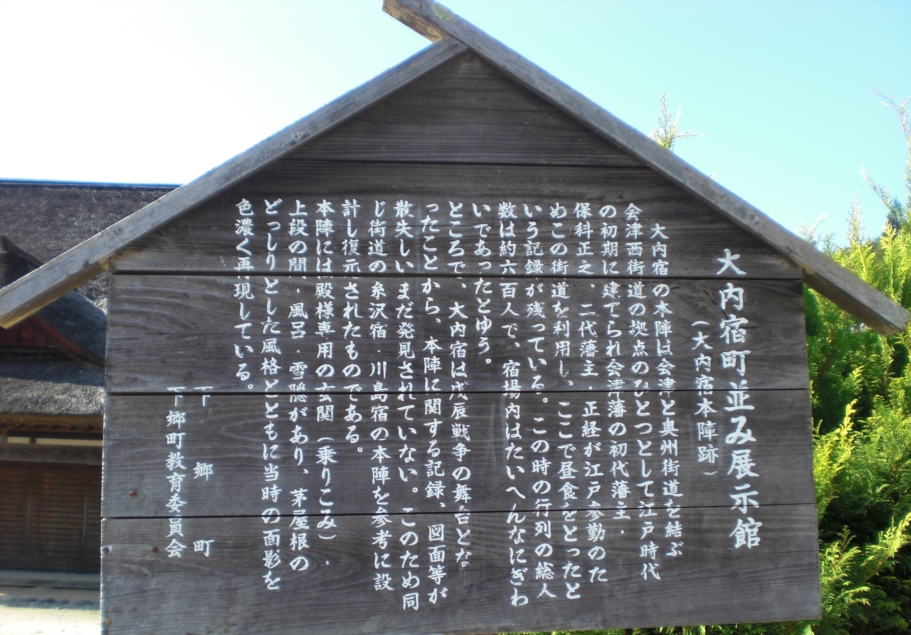 大内宿町並み展示館
（大内宿本陣跡）
大内宿の本陣は会津と奥州街道を結ぶ
会津西街道の拠点のひとつとして江戸時代
の初期に建てられ会津藩の初代藩主．
保科正之、二代藩主．正経が江戸参勤のた
めこの街道を利用し、ここで昼食をとったと
いう記録が残っている。この時の行列の総人
数は約六百人で、宿場内はたいへんなにぎわ
いであったとゆう。
ところで、大内宿は戊辰戦争の舞台とな
ったことから、本陣に関する記録、図面等が
散失しいまだ発見されていない。このため同
じ街道の糸沢宿．川島宿の本陣を参考に設
計し復示されたものである。
本陣には殿様専用の玄関（乗りこみ）．
上段の間．風呂．雪隠があり、茅屋根の
どっしりとした風格とともに当時の面影を
色濃く再現している。
下郷町
下郷町教育委員会